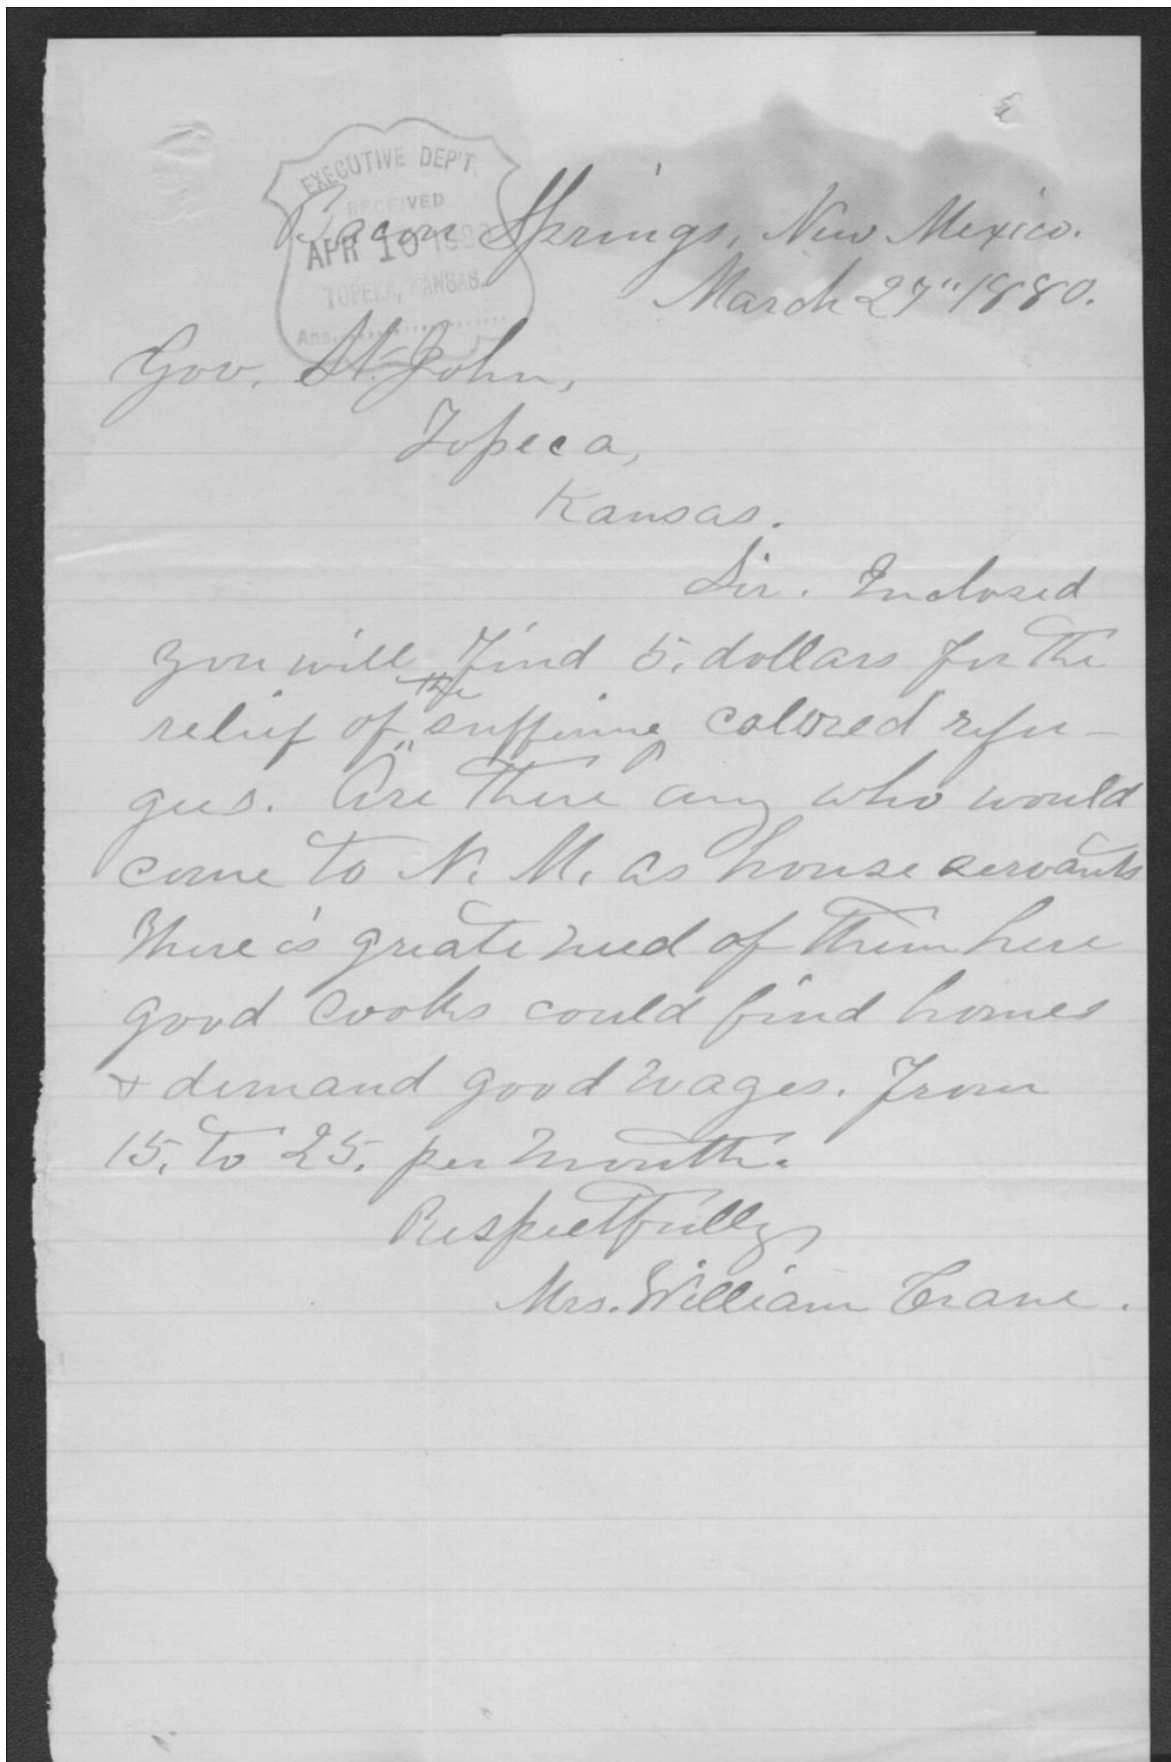 EXECUTIVE DEP'T.
RECEIVED
APR 10 1880
TOPEKA, KANSAS.
Ans.
Springs, New Mexico.
March 27" 1880.
Gov. St. John,
Topeca,
Kansas.
Sir. Inclosed
you will find 5. dollars for the
the
relief of suffering colored refu-
gees. Are there any who would
come to N. M. as house servants
There is greate need of them here
good cooks could find homes
& demand good wages. From
15. to 25. per month.
Respectfully
Mrs. William Crane.